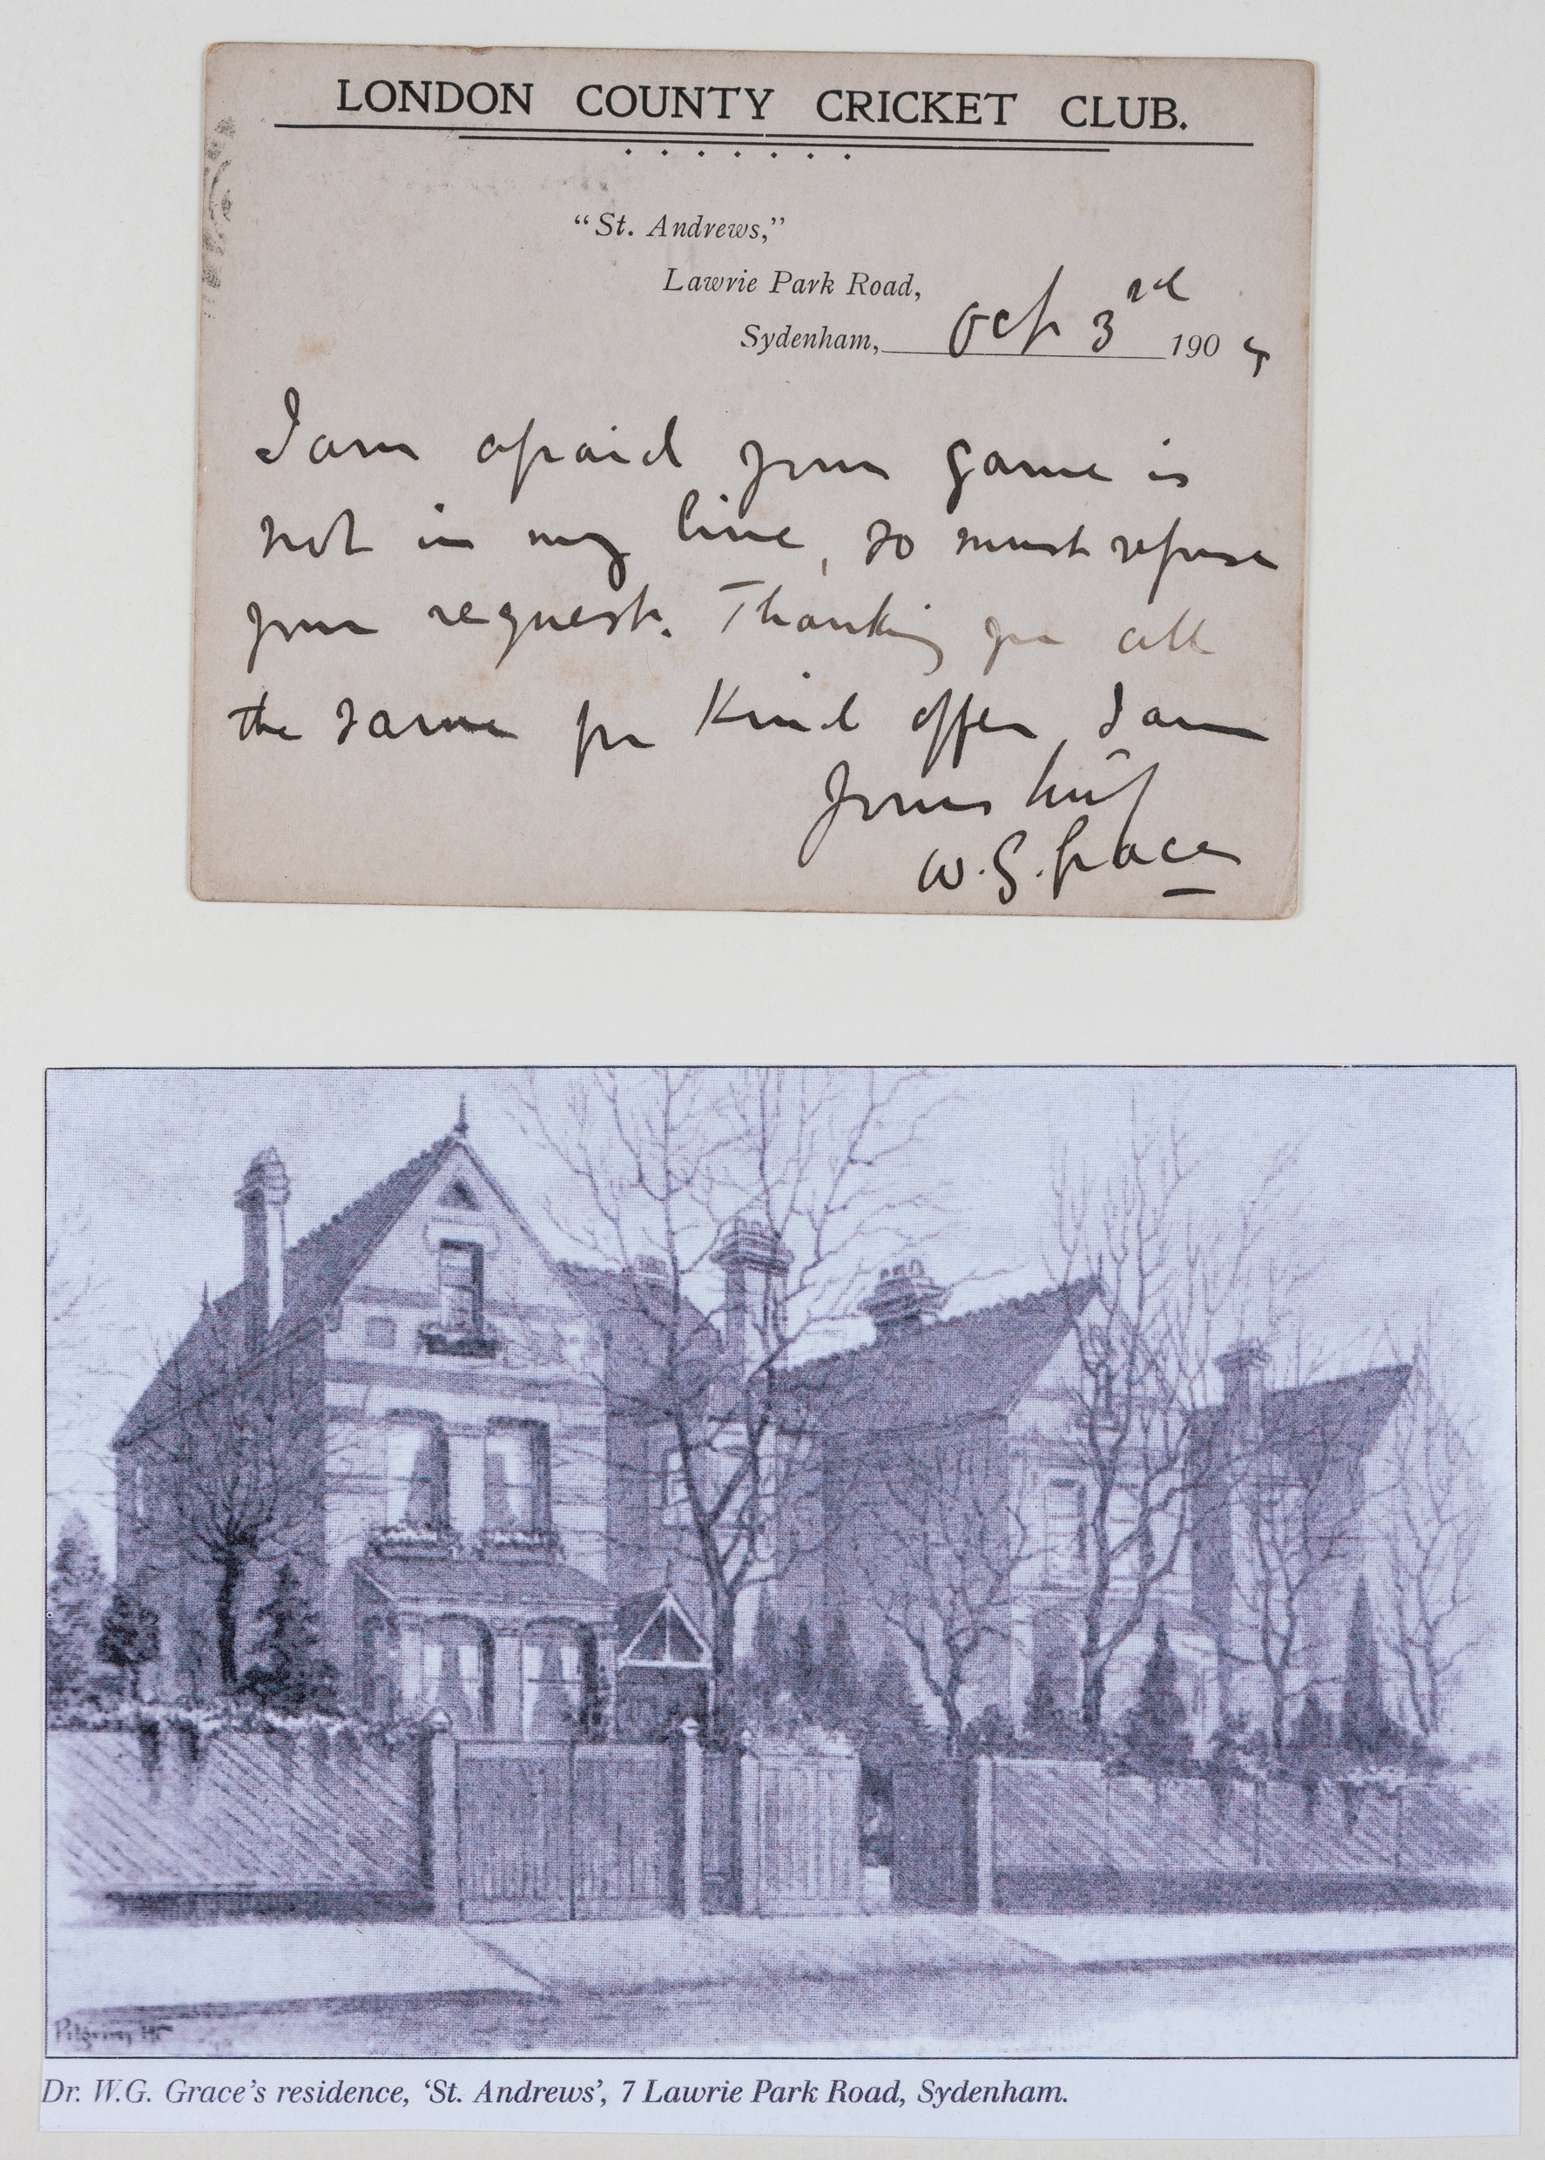 LONDON COUNTY CRICKET CLUB.
"St. Andrews,"
Lawrie Park Road,
Sydenham, Oct 3rd 190
I am afraid your game is
not in my line, so must refuse
your request. Thanking you all
the same for kind offer, I am
Yours truly
W. G. Grace
Pilgrim
Dr. W.G. Grace's residence, 'St. Andrews', 7 Lawrie Park Road, Sydenham.